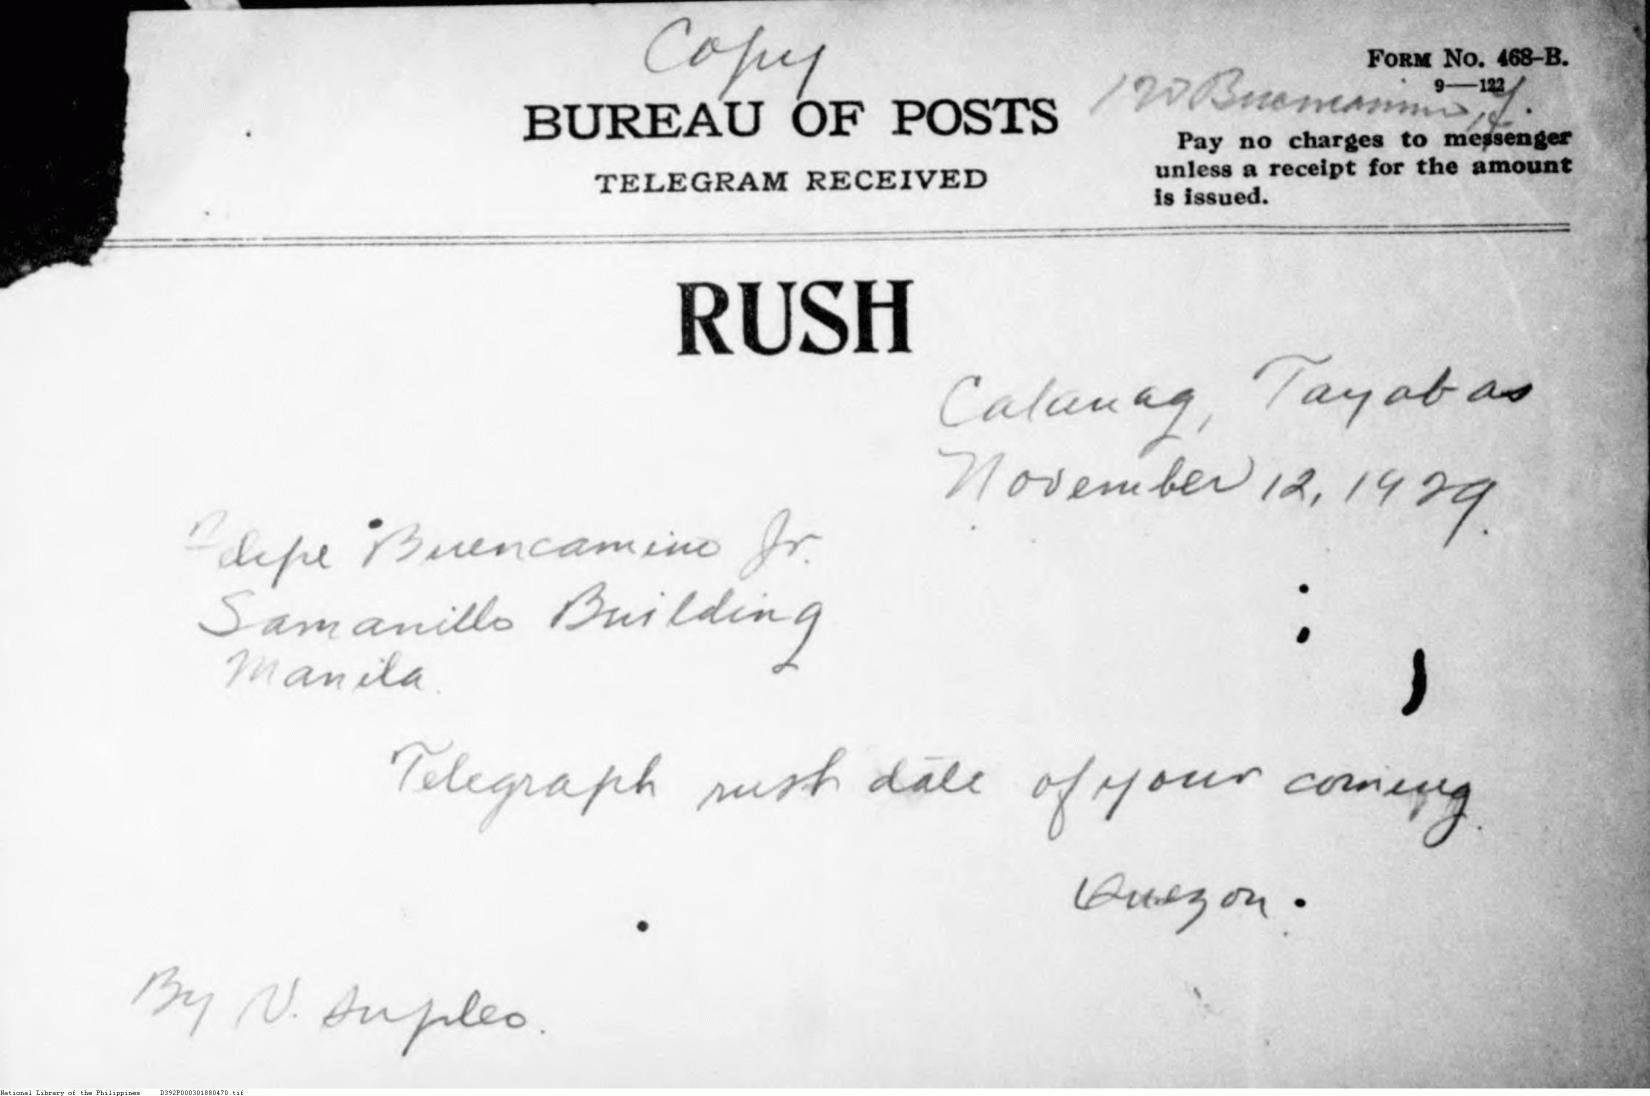 Copy
FORM NO. 468-B.
9—122
BUREAU OF POSTS
TELEGRAM RECEIVED
Pay no charges to messenger
unless a receipt for the amount
is issued.
RUSH
Calauag, Tayabas
November 12, 1929.
Felipe Buencamino Jr.
Samanillo Building
Manila.
Telegraph rush date of your coming.
Quezon.
By V. Supleo.
National Library of the Philippines D392P000301880470.tif